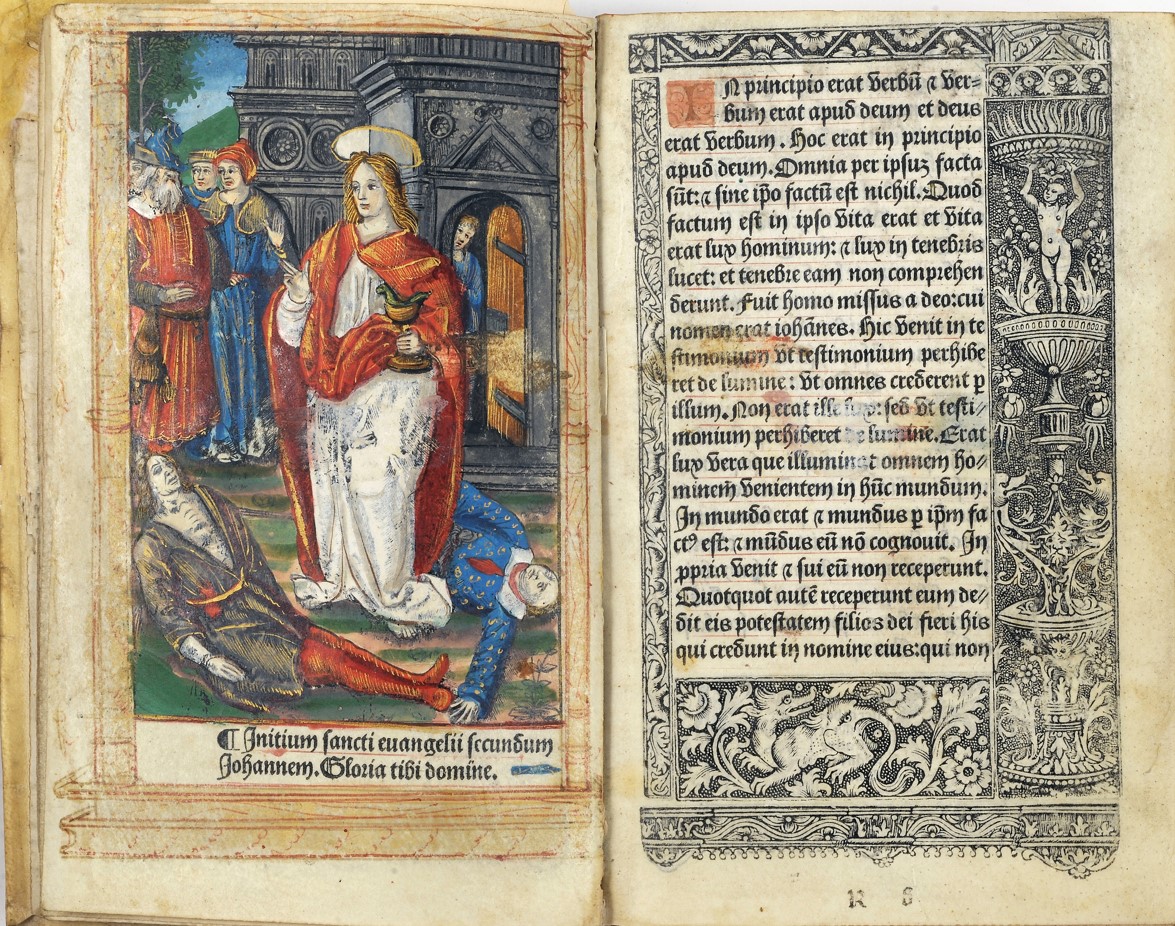 ¶ Initium sancti euangelii secundum
Johannem. Gloria tibi domine.
IN principio erat verbū ⁊ ver-
bum erat apud deum et deus
erat verbum. Hoc erat in principio
apud deum. Omnia per ipsuꝫ facta
sūt: ⁊ sine ip̄o factū est nichil. Quod
factum est in ipso vita erat et vita
erat lux hominum: ⁊ lux in tenebris
lucet: et tenebre eam non comprehen
derunt. Fuit homo missus a deo: cui
nomen erat iohānes. Hic venit in te
stimonium vt testimonium perhibe
ret de lumine: vt omnes crederent ꝑ
illum. Non erat ille lux: sed vt testi-
monium perhiberet de lumine. Erat
lux vera que illuminat omnem ho-
minem venientem in hūc mundum.
In mundo erat ⁊ mundus ꝑ ip̄m fa
ctꝰ est: ⁊ mūdus eū nō cognouit. In
ꝓpria venit ⁊ sui eū non receperunt.
Quotquot autē receperunt eum de-
dit eis potestatem filios dei fieri his
qui credunt in nomine eius: qui non